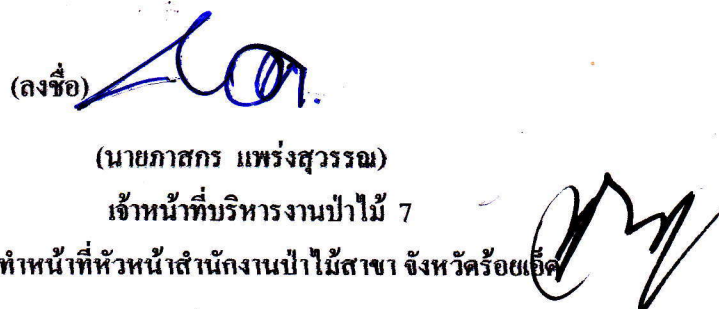 (ลงชื่อ)
(นายภาสกร แพร่งสุวรรณ)
เจ้าหน้าที่บริหารงานป่าไม้ 7
ทำหน้าที่หัวหน้าสำนักงานป่าไม้สาขา จังหวัดร้อยเอ็ด